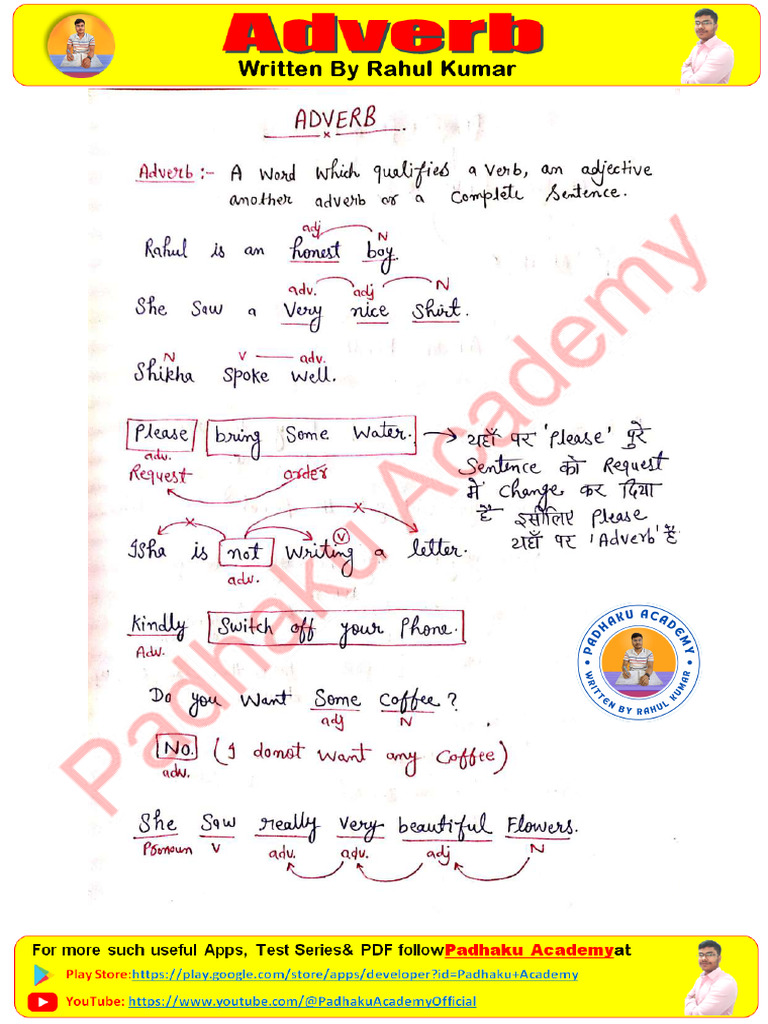 Adverb
Written By Rahul Kumar
ADVERB
Adverb :- A word which qualifies a verb, an adjective
another adverb or a complete sentence.
adj N
Rahul is an honest boy.
adv. adj N
She saw a very nice shirt.
N V adv.
Shikha spoke well.
Please bring some water. → यहाँ पर 'Please' पुरे
adv.
Request order
Sentence को Request
में change कर दिया
है इसीलिए Please
यहाँ पर 'Adverb' है
V
Isha is not writing a letter.
adv.
Kindly Switch off your Phone.
Adv.
PADHAKU ACADEMY
WRITTEN BY RAHUL KUMAR
Do you want some coffee?
adj N
No. (I donot want any coffee)
adv.
She saw really very beautiful Flowers.
Pronoun V adv. adv. adj N
Padhaku Academy
For more such useful Apps, Test Series& PDF followPadhaku Academyat
Play Store:https://play.google.com/store/apps/developer?id=Padhaku+Academy
YouTube: https://www.youtube.com/@PadhakuAcademyOfficial